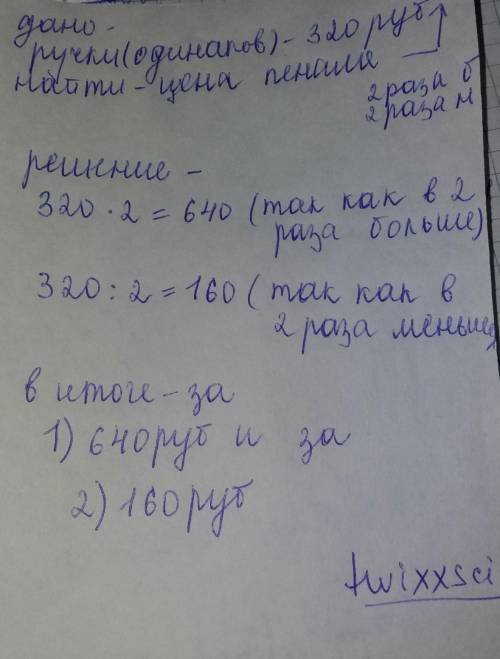 дано -
ручки(одинаков) - 320 руб
найти - цена пенала
2 раза б
2 раза м
решение -
320 · 2 = 640 (так как в 2
раза больше)
320 : 2 = 160 (так как в
2 раза меньше)
в итоге - за
1) 640 руб и за
2) 160 руб
twixxsci